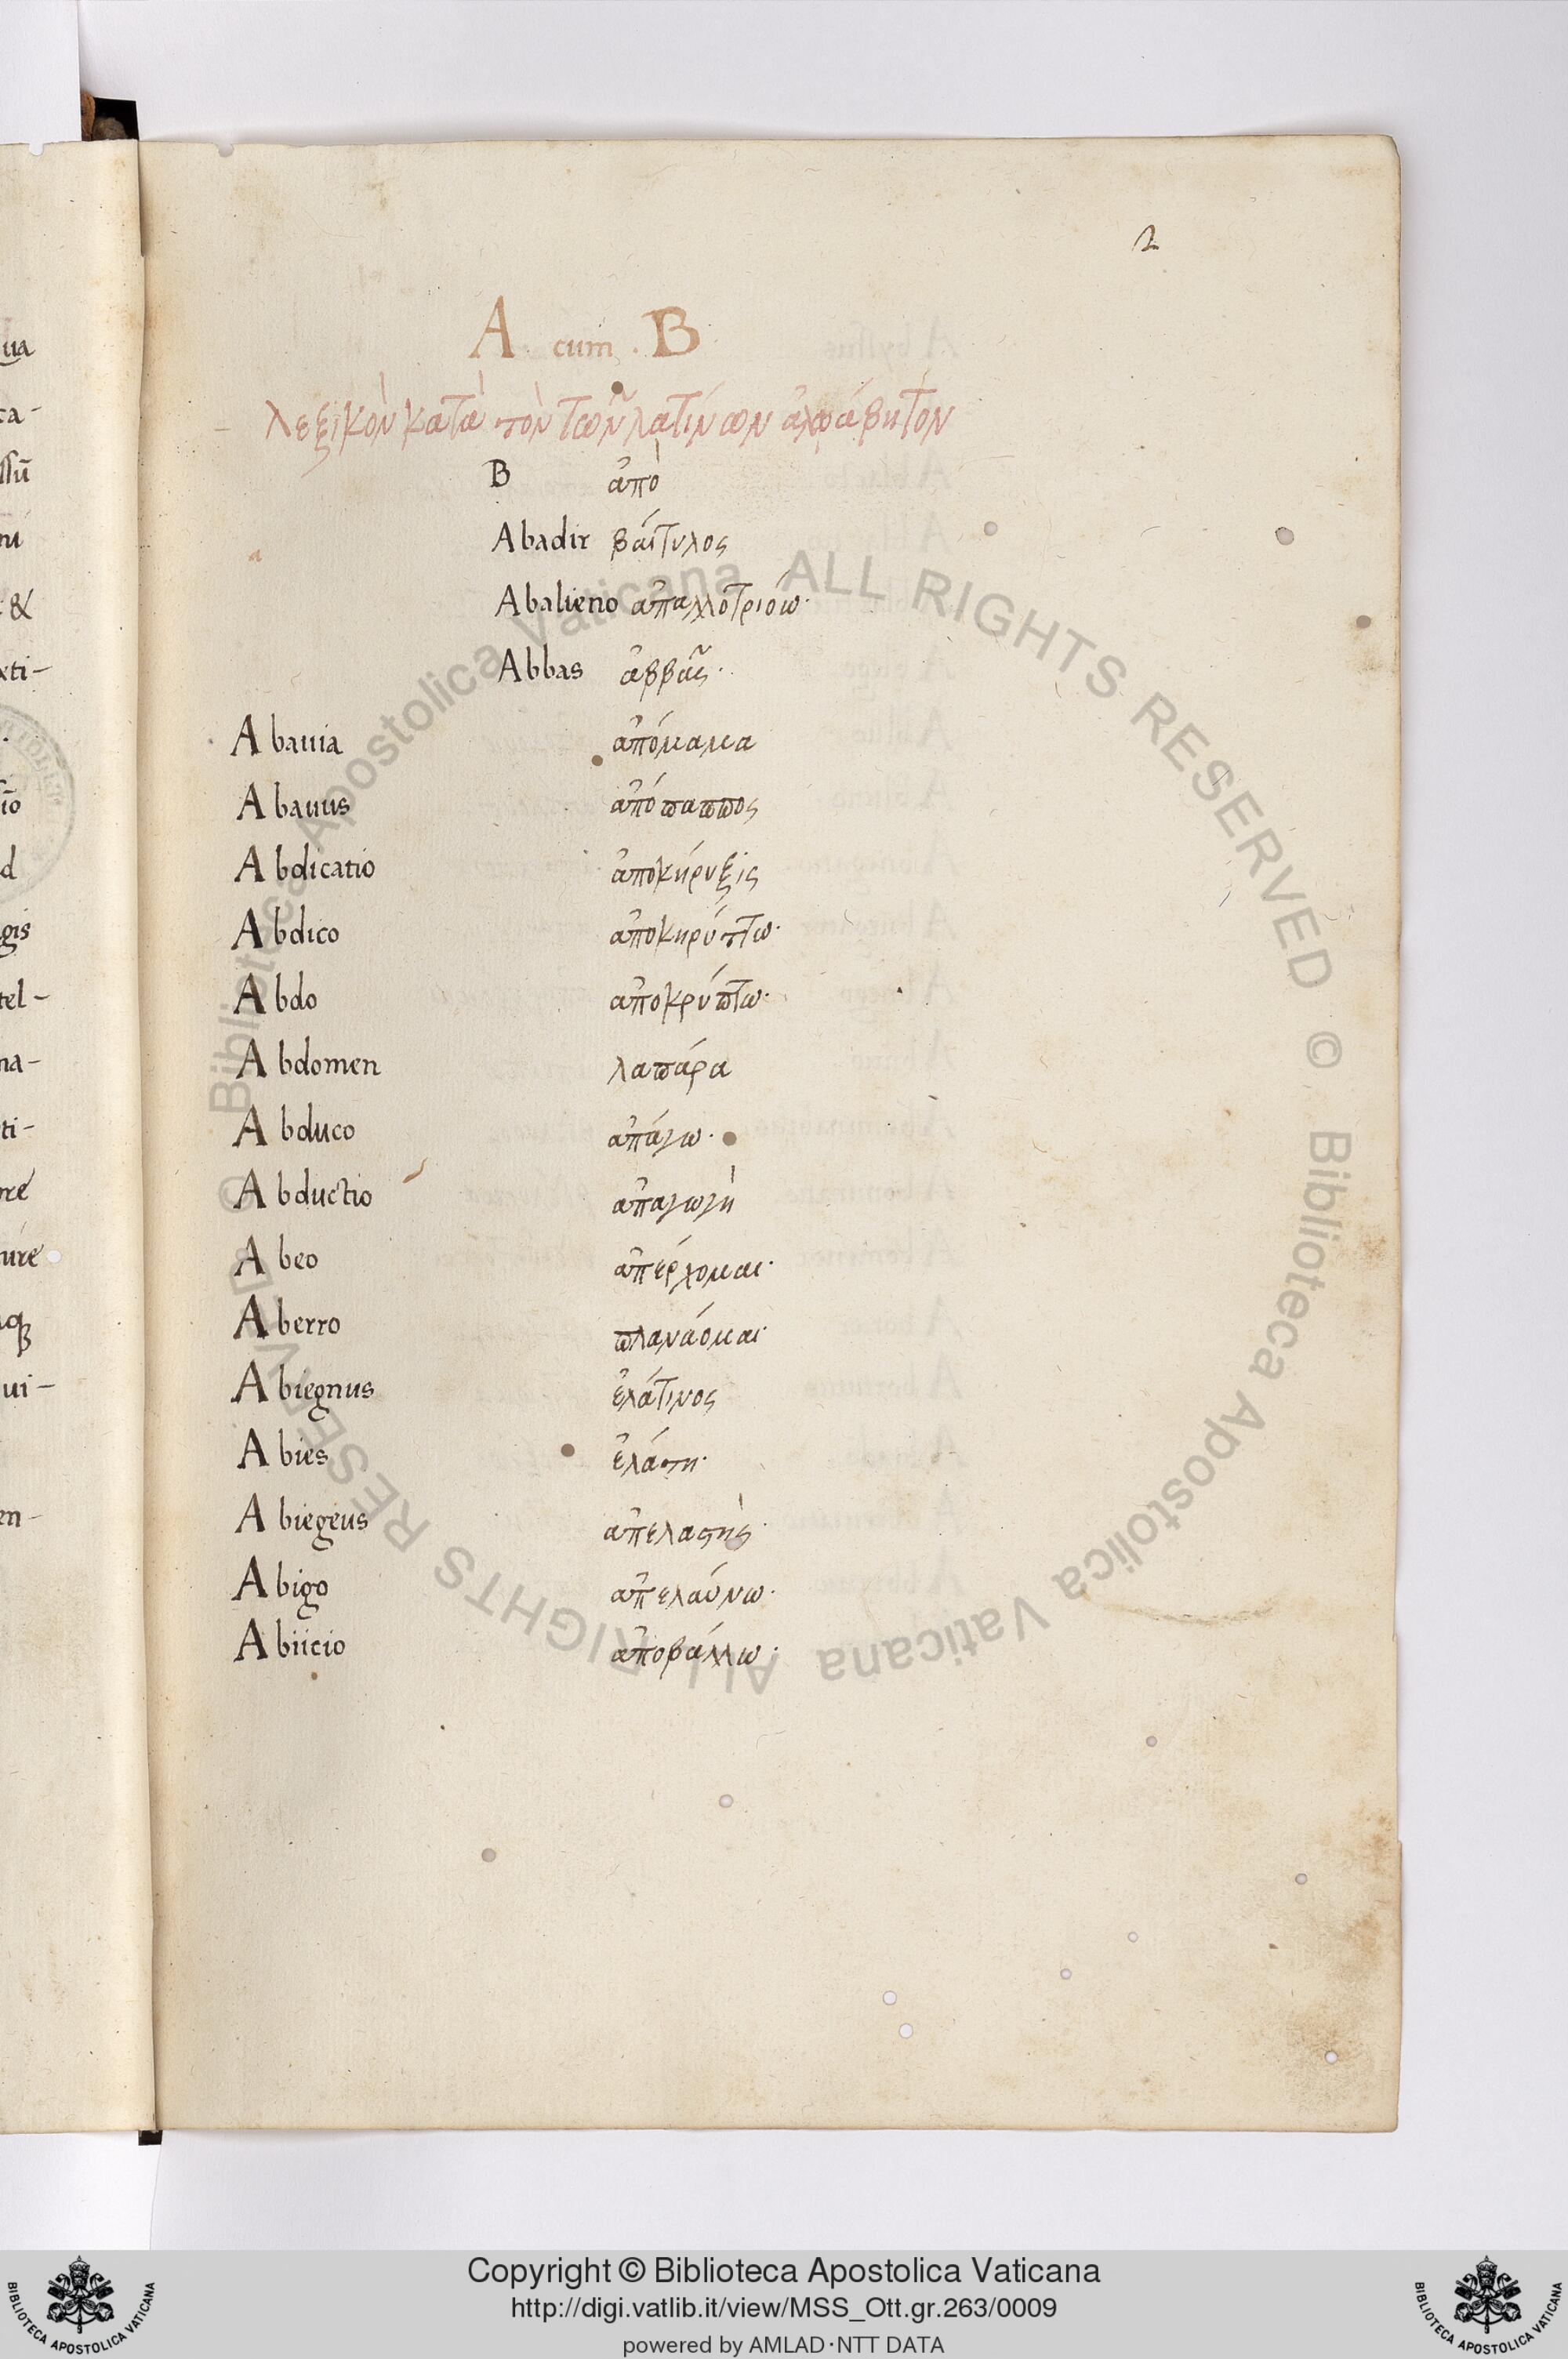 2
A cum B
λεξικὸν κατὰ τὸν τῶν λατίνων ἀλφάβητον
B ἀπὸ
Abadir βαίτυλος
Abalieno ἀπαλλοτριόω·
Abbas ἀββᾶς·
Abauia ἀπόμαμα
Abauus ἀπόπαππος
Abdicatio ἀποκήρυξις
Abdico ἀποκηρύττω·
Abdo ἀποκρύπτω·
Abdomen λαπάρα
Abduco ἀπάγω·
Abductio ἀπαγωγὴ
Abeo ἀπέρχομαι·
Aberro πλανάομαι·
Abiegnus ἐλάτινος
Abies ἐλάτη·
Abiegeus ἀπελατὴς·
Abigo ἀπελαύνω·
Abiicio ἀποβάλλω·
ua
ca-
ssũ
&
xti-
d
gis
tel-
na-
ti-
ure
ui-
en-
© Biblioteca Apostolica Vaticana ALL RIGHTS RESERVED © Biblioteca Apostolica Vaticana ALL RIGHTS RESERVED
Copyright © Biblioteca Apostolica Vaticana
http://digi.vatlib.it/view/MSS_Ott.gr.263/0009
powered by AMLAD·NTT DATA
BIBLIOTECA APOSTOLICA VATICANA
BIBLIOTECA APOSTOLICA VATICANA